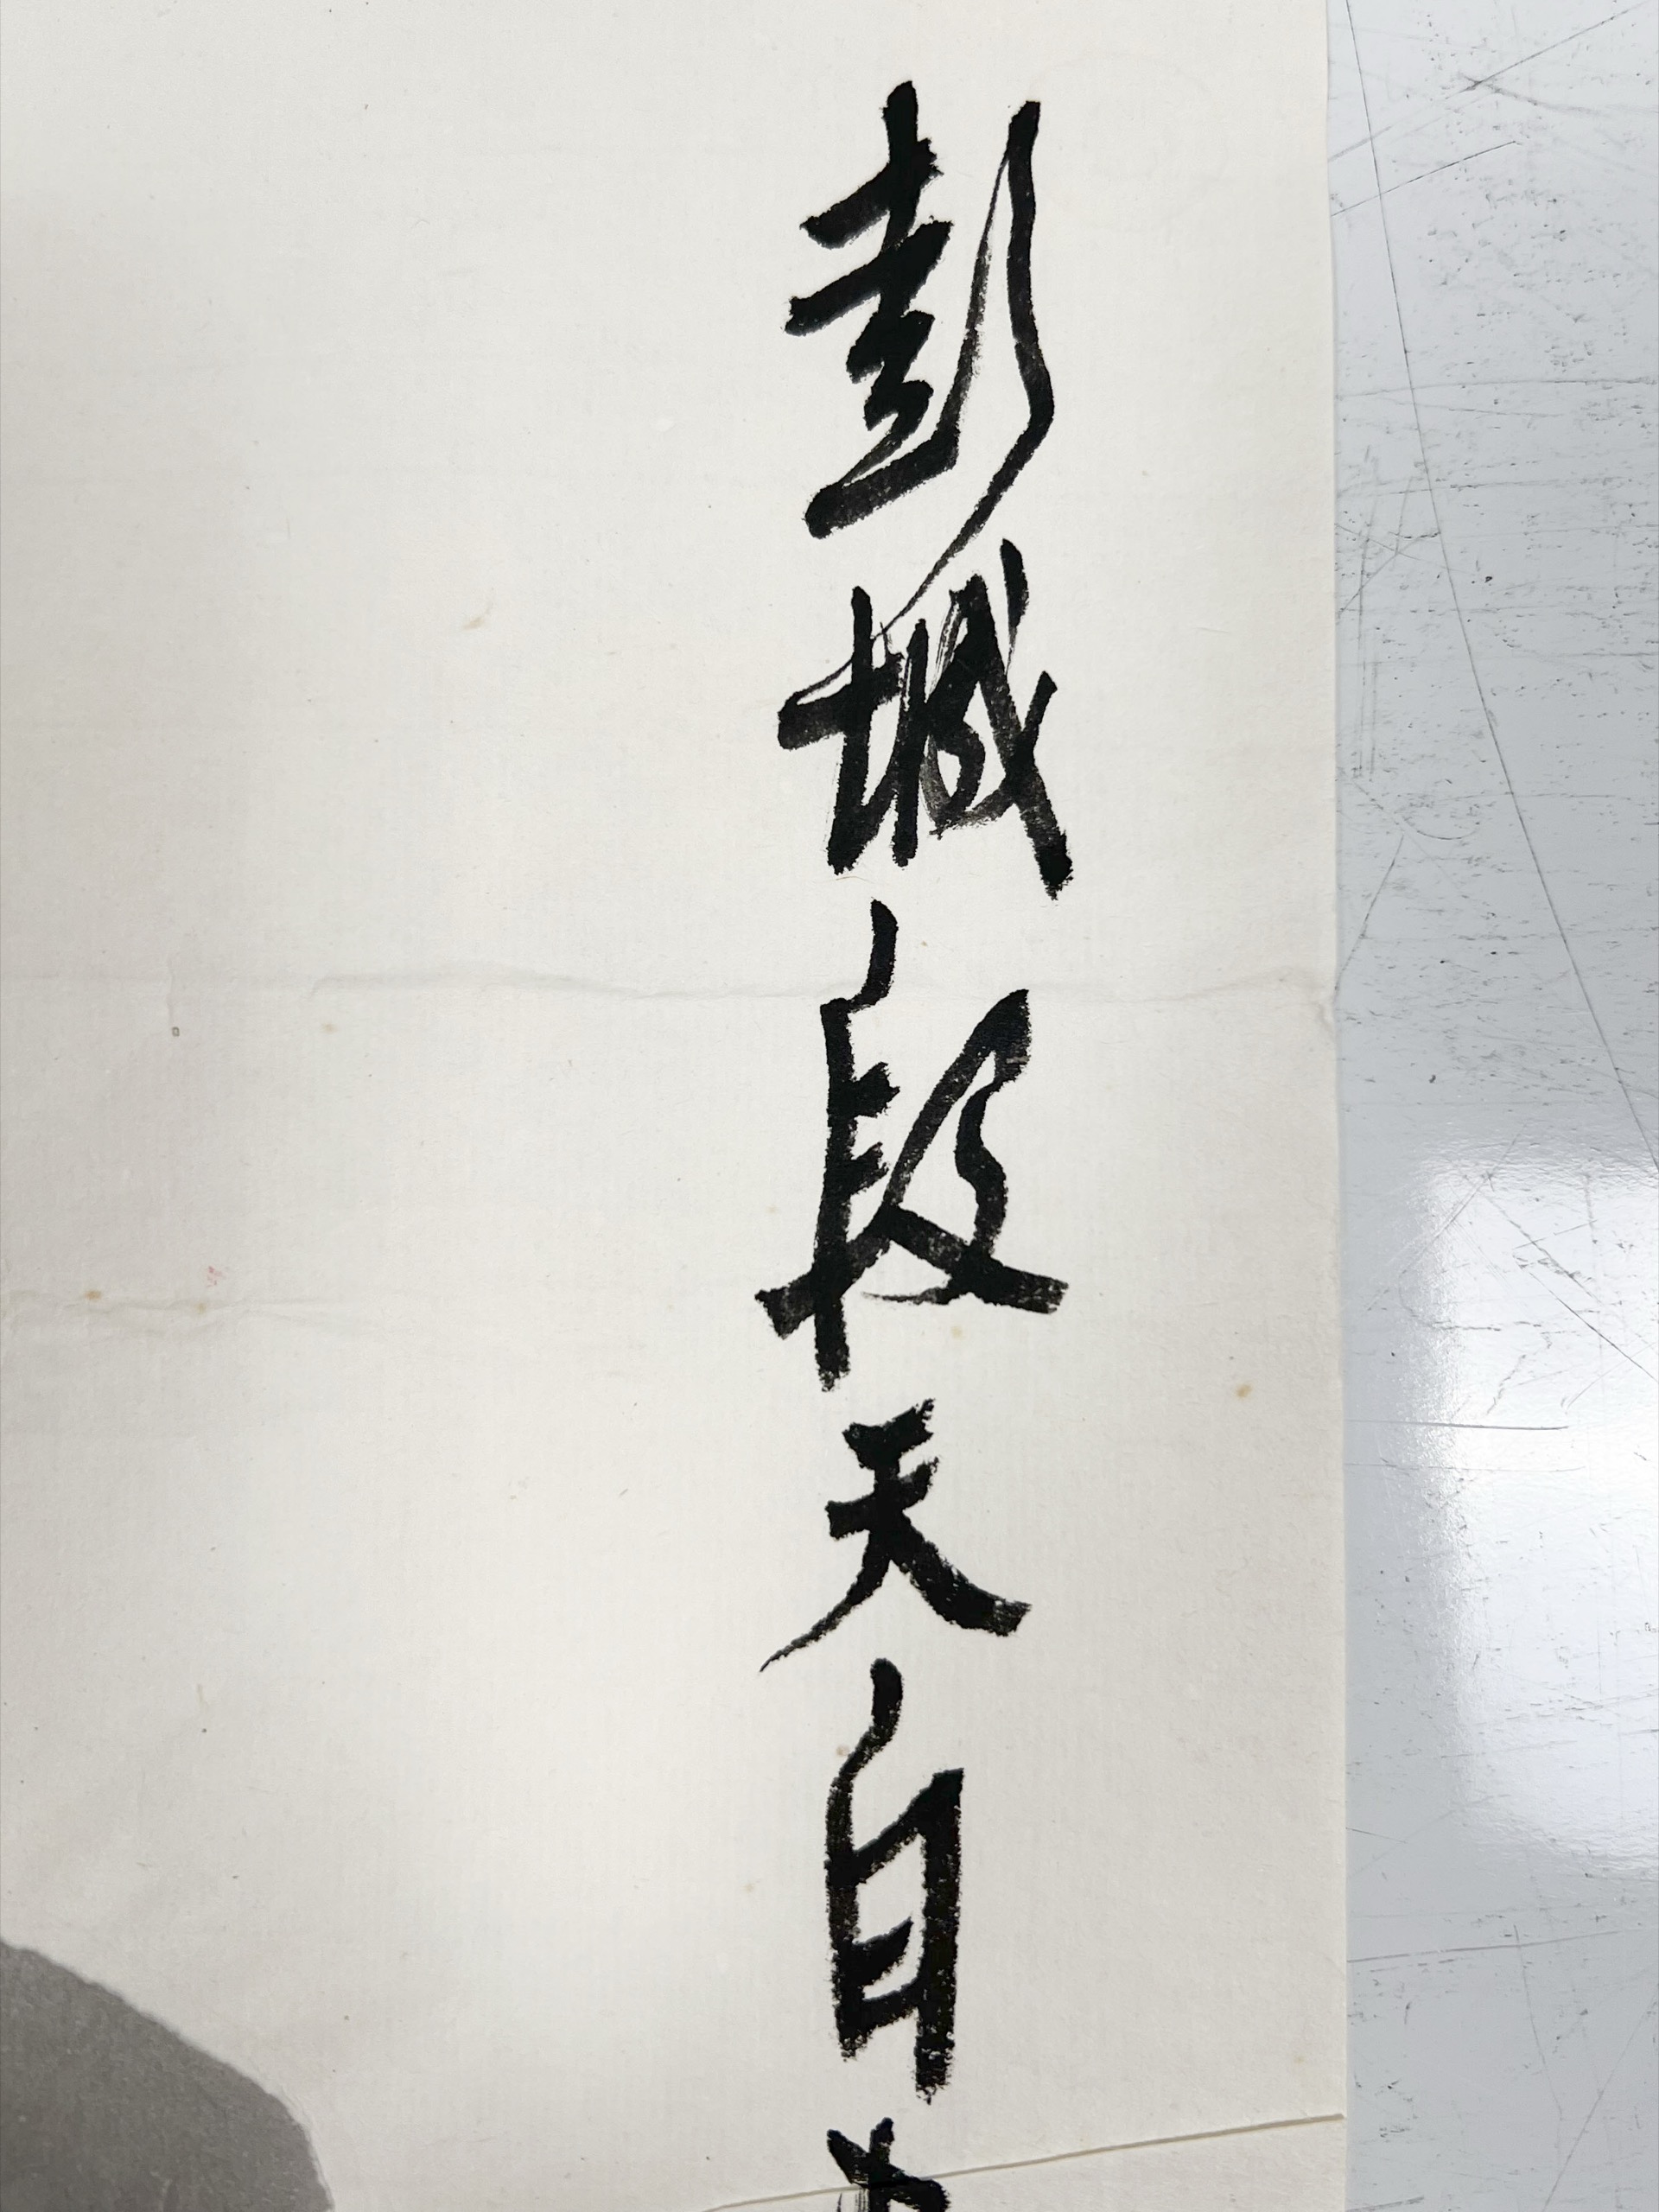 彭城段天白